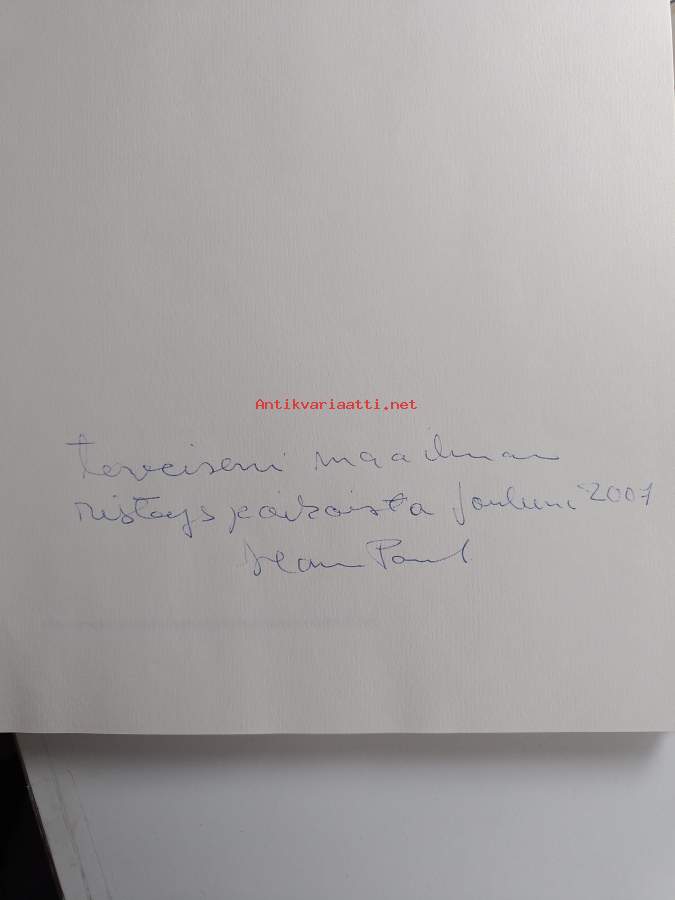 Antikvariaatti.net
terveiseni maailman
risteyspaikoista Jouluni 2007
Jean Paul